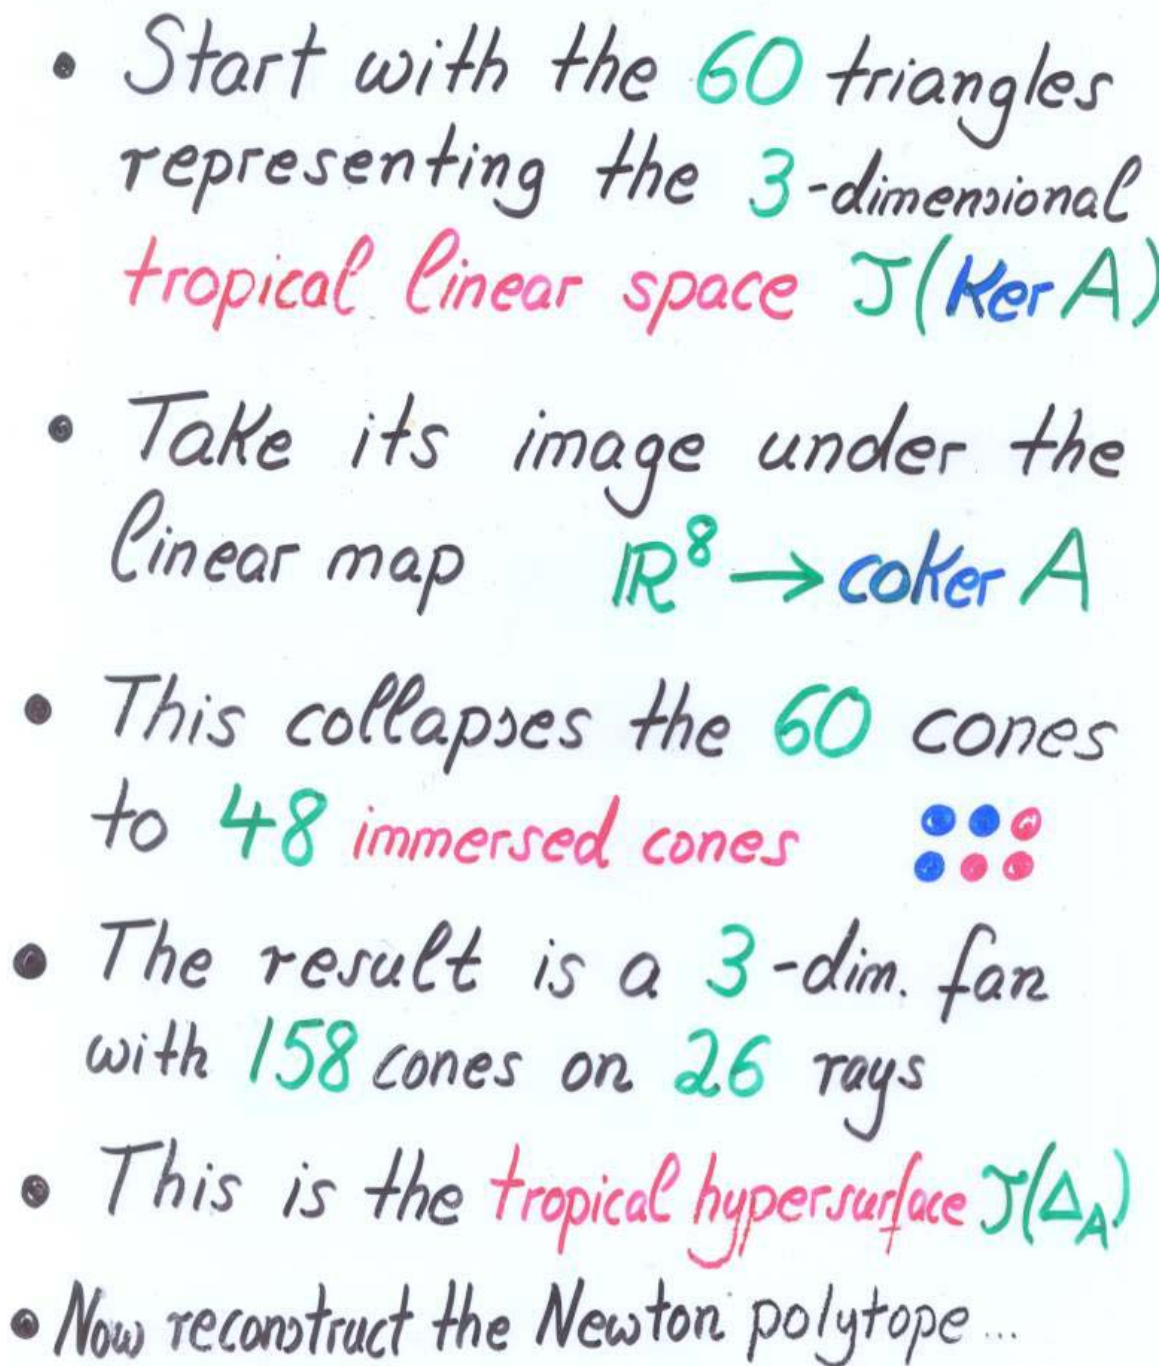 • Start with the 60 triangles
representing the 3-dimensional
tropical linear space T(Ker A)
• Take its image under the
linear map ℝ⁸ → coker A
• This collapses the 60 cones
to 48 immersed cones
• The result is a 3-dim. fan
with 158 cones on 26 rays
• This is the tropical hypersurface T(Δ_A)
• Now reconstruct the Newton polytope...